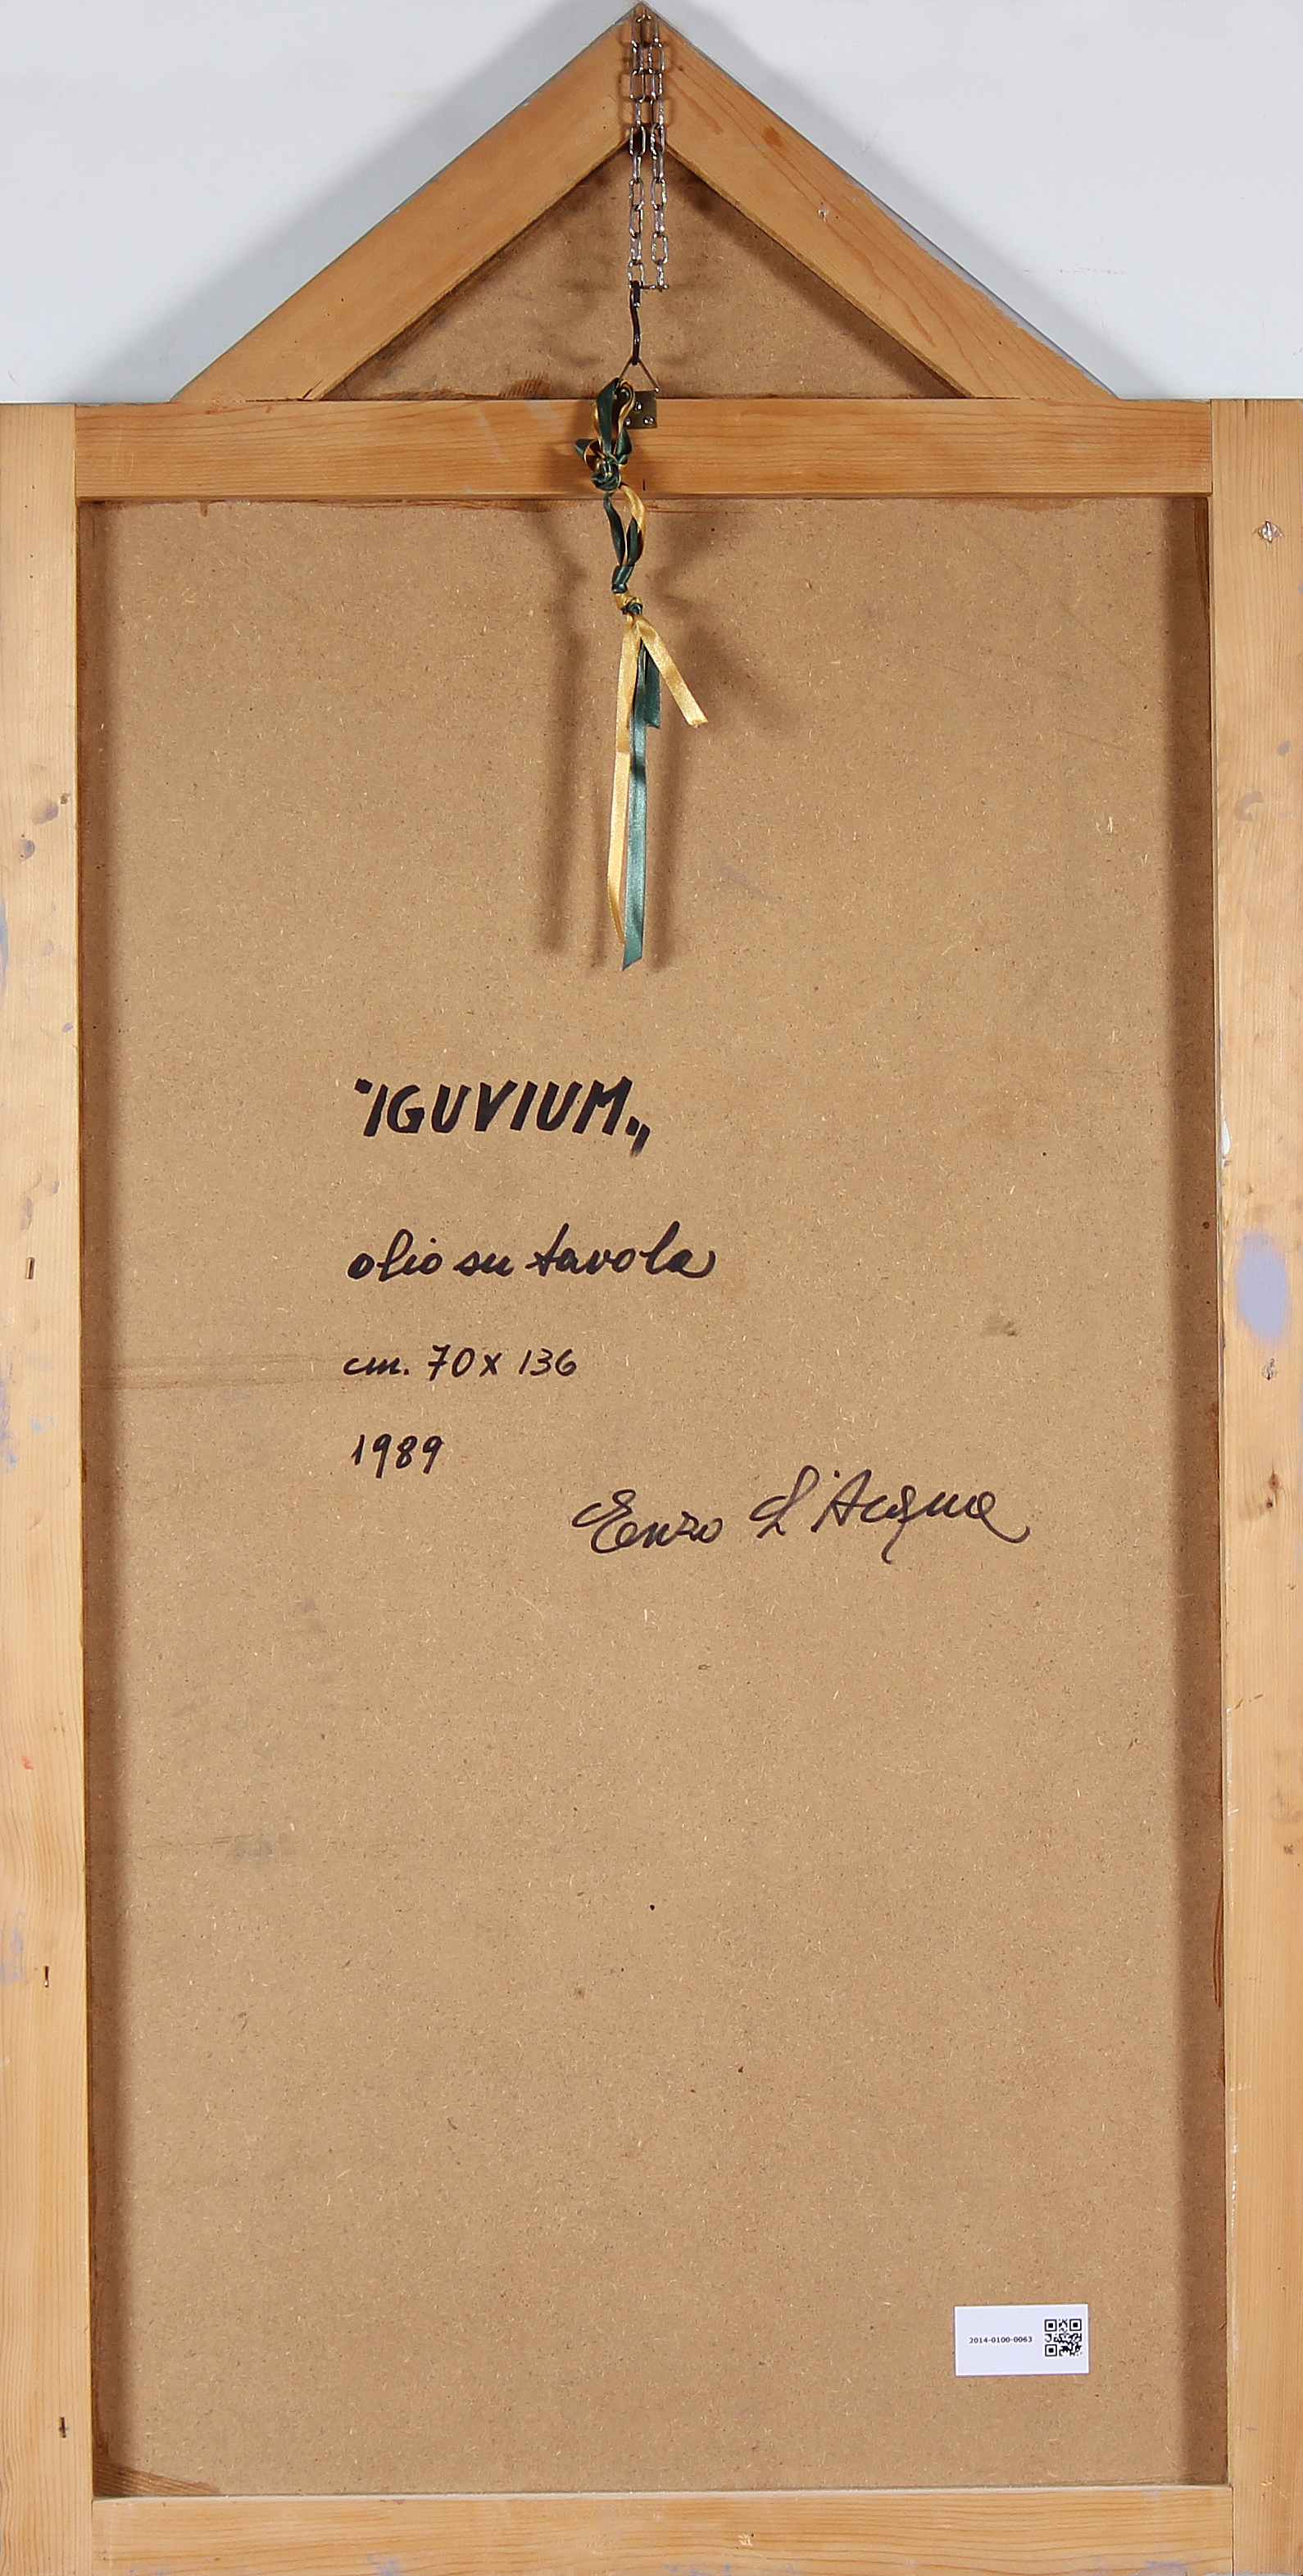 "IGUVIUM„
olio su tavola
cm. 70 x 136
1989
Enzo L'Acqua
2014-0100-0063